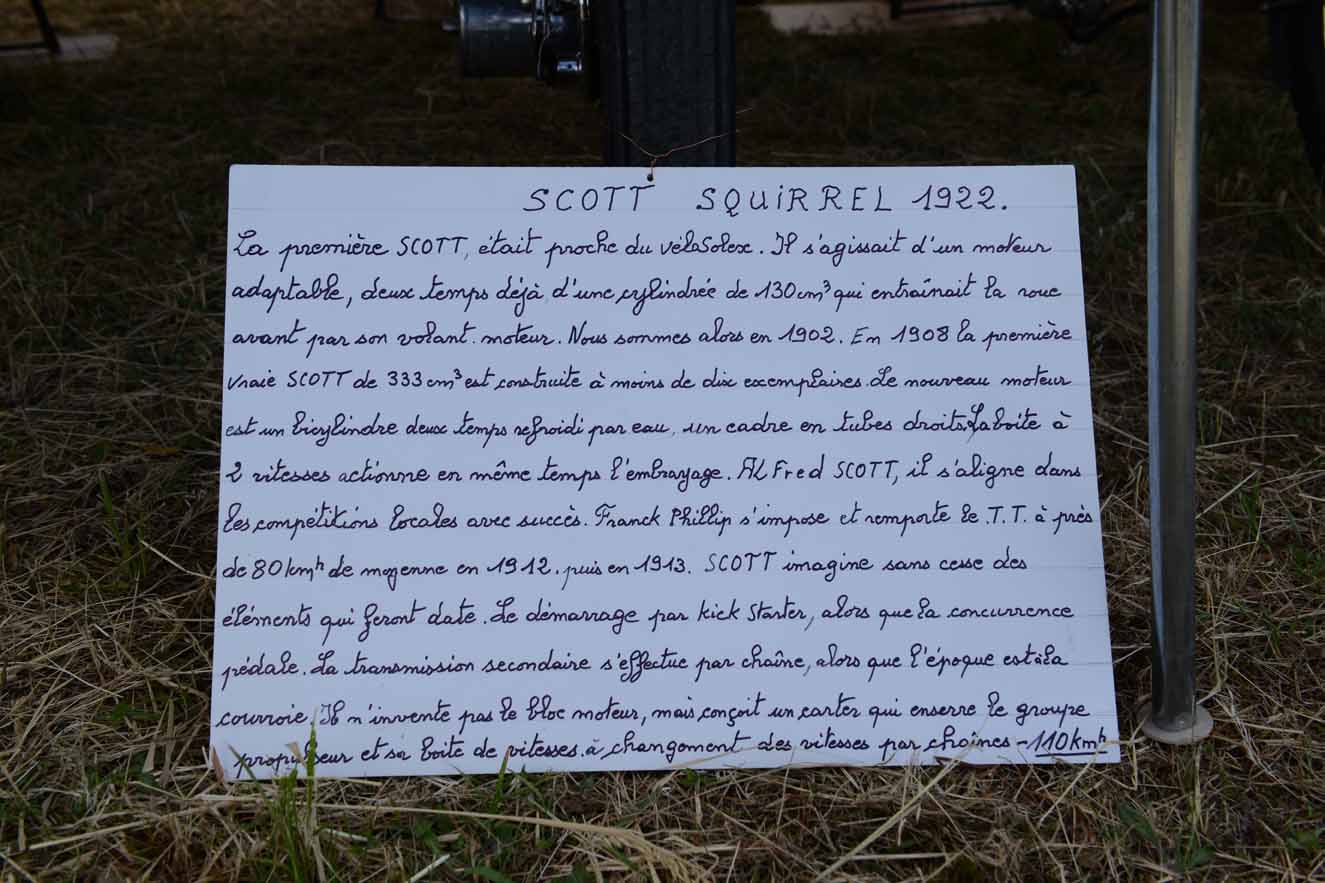 SCOTT SQUiRREL 1922.
La première SCOTT, était proche du vélosolex. Il s'agissait d'un moteur
adaptable, deux temps déjà, d'une cylindrée de 130 cm³ qui entraînait la roue
avant par son volant moteur. Nous sommes alors en 1902. En 1908 la première
vraie SCOTT de 333 cm³ est construite à moins de dix exemplaires. Le nouveau moteur
est un bicylindre deux temps refroidi par eau, un cadre en tubes droits. La boite à
2 vitesses actionne en même temps l'embrayage. ALFred SCOTT, il s'aligne dans
les compétitions locales avec succès. Franck Phillip s'impose et remporte le T.T. à près
de 80 kmh de moyenne en 1912. puis en 1913. SCOTT imagine sans cesse des
éléments qui feront date. Le démarrage par kick Starter, alors que la concurrence
pédale. La transmission secondaire s'effectue par chaîne, alors que l'époque est à la
courroie. Il n'invente pas le bloc moteur, mais conçoit un carter qui enserre le groupe
propulseur et sa boite de vitesses. à changement des vitesses par chaînes - 110 kmh